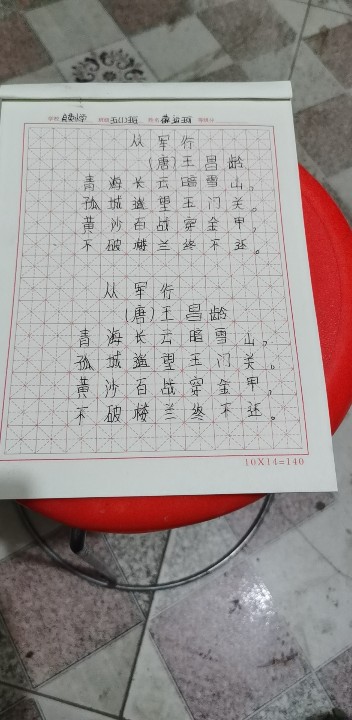 从军行
(唐)王昌龄
青海长云暗雪山。
孤城遥望玉门关。
黄沙百战穿金甲,
不破楼兰终不还。
从军行
(唐)王昌龄
青海长云暗雪山。
孤城遥望玉门关。
黄沙百战穿金甲,
不破楼兰终不还。
10X14=140